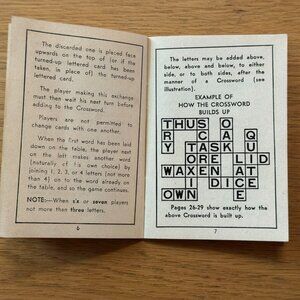 The discarded one is placed face
upwards on the top of (or if the
turned-up lettered card has been
taken, in place of) the turned-up
lettered card.
The player making this exchange
must then wait his next turn before
adding to the Crossword.
Players are not permitted to
change cards with one another.
When the first word has been laid
down on the table, the player next
on the left makes another word
(naturally of his own choice) by
joining 1, 2, 3, or 4 letters (not more
than 4) on to the word already on
the table, and so the game continues.
NOTE:—When six or seven players
not more then three letters.
6
The letters may be added above,
below, above and below, to either
side, or to both sides, after the
manner of a Crossword (see
illustration).
EXAMPLE OF
HOW THE CROSSWORD
BUILDS UP
THUS O
R C A Q
Y TASK U
ORE LID
WAXEN AT
A DICE
OWN E
Pages 26-29 show exactly how the
above Crossword is built up.
7